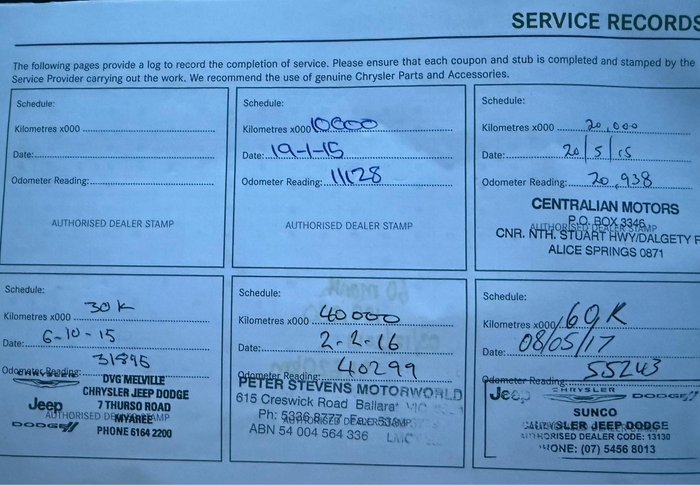 SERVICE RECORDS
The following pages provide a log to record the completion of service. Please ensure that each coupon and stub is completed and stamped by the
Service Provider carrying out the work. We recommend the use of genuine Chrysler Parts and Accessories.
Schedule:
Kilometres x000
Date:
Odometer Reading:
AUTHORISED DEALER STAMP
Schedule:
Kilometres x000 10000
Date: 19-1-15
Odometer Reading: 11128
AUTHORISED DEALER STAMP
Schedule:
Kilometres x000 20,000
Date: 20/5/15
Odometer Reading: 20,938
CENTRALIAN MOTORS
P.O. BOX 3346
AUTHORISED DEALER STAMP
CNR. NTH. STUART HWY/DALGETY R
ALICE SPRINGS 0871
Schedule:
Kilometres x000 30K
Date: 6-10-15
Odometer Reading: 31895
CHRYSLER
DVG MELVILLE
CHRYSLER JEEP DODGE
Jeep
7 THURSO ROAD
AUTHORISED DEALER STAMP
MYAREE
DODGE
PHONE 6164 2200
Schedule:
Kilometres x000 40000
Date: 2-2-16
Odometer Reading: 40299
PETER STEVENS MOTORWORLD
615 Creswick Road Ballarat VIC
Ph: 5336 8777
AUTHORISED DEALER STAMP
ABN 54 004 564 336 LMC
Schedule:
Kilometres x000 60K
Date: 08/05/17
Odometer Reading: 55243
Jeep CHRYSLER DODGE
SUNCO
CHRYSLER JEEP DODGE
AUTHORISED DEALER CODE: 13130
PHONE: (07) 5456 8013